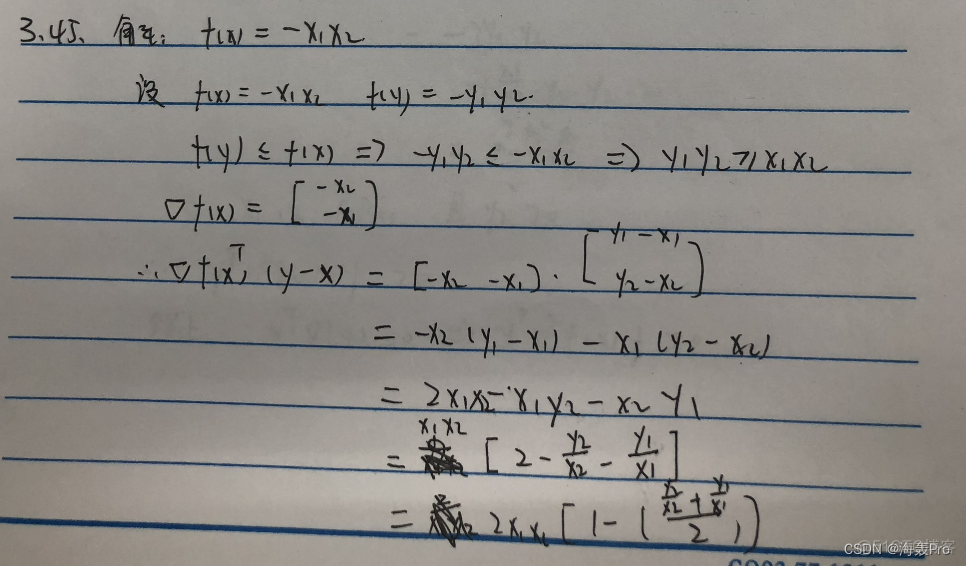 3.45. 解: f(x) = -x₁x₂
设 f(x) = -x₁x₂ f(y) = -y₁y₂.
f(y) ≤ f(x) => -y₁y₂ ≤ -x₁x₂ => y₁y₂ ≥ x₁x₂
∇f(x) = [-x₂ -x₁]
∴ ∇f(x)ᵀ(y-x) = [-x₂ -x₁]·[y₁-x₁ y₂-x₂]
= -x₂(y₁-x₁) - x₁(y₂-x₂)
= 2x₁x₂ - x₁y₂ - x₂y₁
= x₁x₂ [2 - y₂/x₂ - y₁/x₁]
= 2x₁x₂ [1 - (y₂/x₂ + y₁/x₁)/2)]
CSDN @海轰Pro